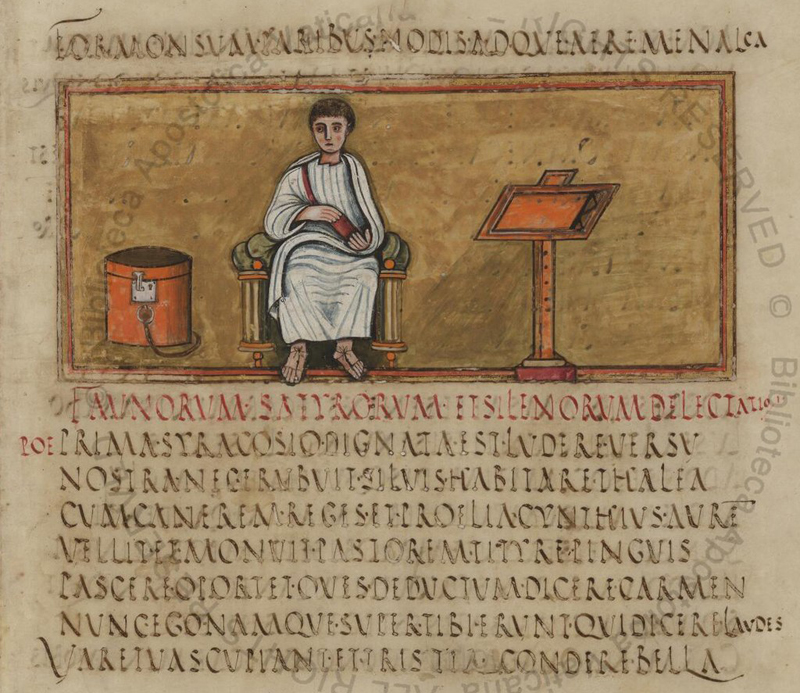 FORMONSVM·PARIBVS·NODIS·ADQVE·AERE·MENALCA
FAVNORVM·SATYRORVM·ET·SILENORVM·DELECTATIO
POE PRIMA·SYRACOSIO·DIGNATA·EST·LVDERE·VERSV
NOSTRA·NEC·ERVBVIT·SILVIS·HABITARE·THALEA
CVM·CANEREM·REGES·ET·PROELIA·CYNTHIVS·AVRE
VELLIT·ET·MONVIT·PASTOREM·TITYRE·PINGVIS
PASCERE·OPORTET·OVES·DEDVCTVM·DICERE·CARMEN
NVNC·EGO·NAMQVE·SVPER·TIBI·ERVNT·QVI·DICERE·LAVDES
VARE·TVAS·CVPIANT·ET·TRISTIA·CONDERE·BELLA
Biblioteca Apostolica
RESERVED © Biblioteca Apostolica